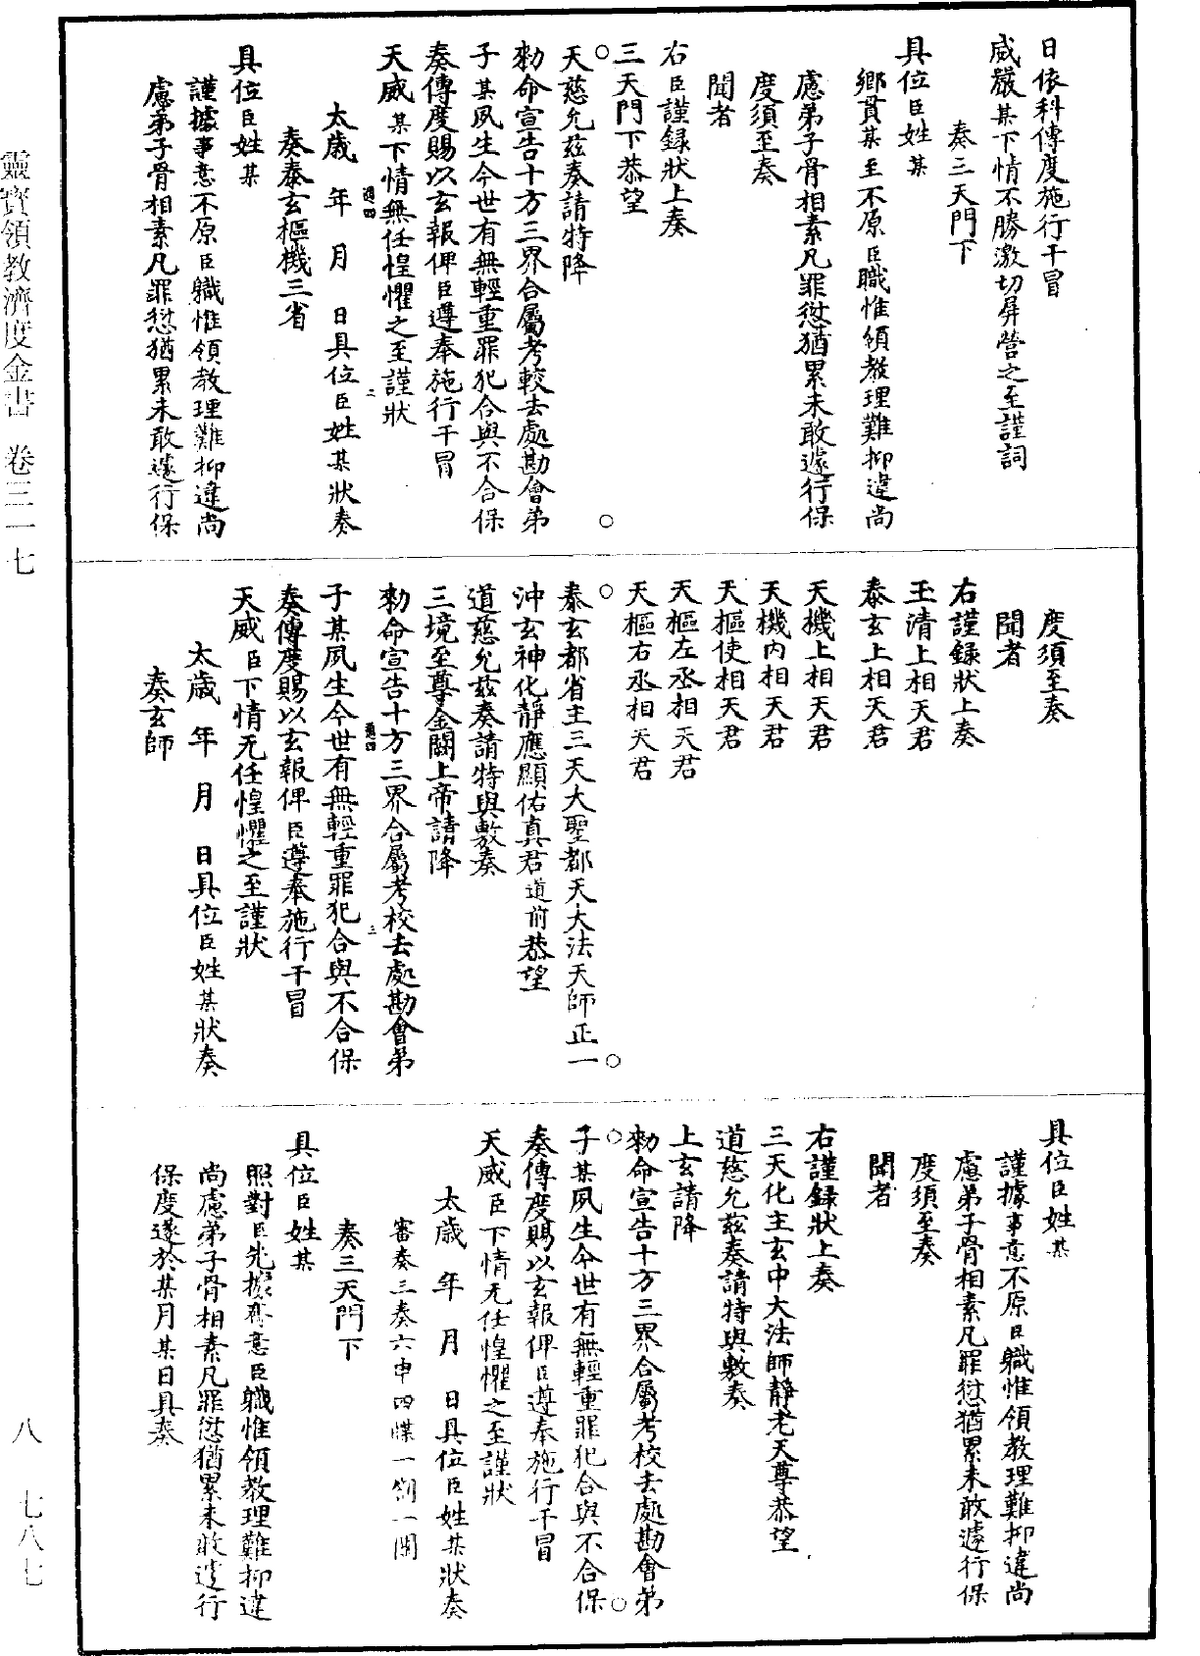 日依科傳度施行干冒
威嚴某下情不勝激切屏營之至謹詞
奏三天門下
具位臣姓某
鄉貫某至不原臣職惟領教理難抑違尚
慮弟子骨相素凡罪愆猶累未敢遽行保
度須至奏
聞者
右臣謹録狀上奏
三天門下恭望
天慈允兹奏請特降
勑命宣告十方三界合屬考較去處勘會弟
子某夙生今世有無輕重罪犯合與不合保
奏傳度賜以玄報俾臣遵奉施行干冒
天威某下情無任惶懼之至謹狀
太歲 年 月 日具位臣姓某狀奏
奏泰玄樞機三省
具位臣姓某
謹據事意不原臣職惟領教理難抑違尚
慮弟子骨相素凡罪愆猶累未敢遽行保
度須至奏
聞者
右謹録狀上奏
玉清上相天君
泰玄上相天君
天機上相天君
天機內相天君
天樞使相天君
天樞左丞相天君
天樞右丞相天君
泰玄都省主三天大聖都天大法天師正一
沖玄神化靜應顯佑真君道前恭望
道慈允兹奏請特與敷奏
三境至尊金闕上帝請降
勑命宣告十方三界合屬考校去處勘會弟
子某夙生今世有無輕重罪犯合與不合保
奏傳度賜以玄報俾臣遵奉施行干冒
天威臣下情无任惶懼之至謹狀
太歲 年 月 日具位臣姓某狀奏
奏玄師
具位臣姓某
謹據事意不原臣職惟領教理難抑違尚
慮弟子骨相素凡罪愆猶累未敢遽行保
度須至奏
聞者
右謹録狀上奏
三天化主玄中大法師靜老天尊恭望
道慈允兹奏請特與敷奏
上玄請降
勑命宣告十方三界合屬考校去處勘會弟
子某夙生今世有無輕重罪犯合與不合保
奏傳度賜以玄報俾臣遵奉施行干冒
天威臣下情无任惶懼之至謹狀
太歲 年 月 日具位臣姓某狀奏
審奏三奏六申四牒一劄一關
奏三天門下
具位臣姓某
照對臣先據齊意臣職惟領教理難抑違
尚慮弟子骨相素凡罪愆猶累未敢遽行
保度遂於某月某日具奏
靈寶領教濟度金書 卷三一七
八 七八七